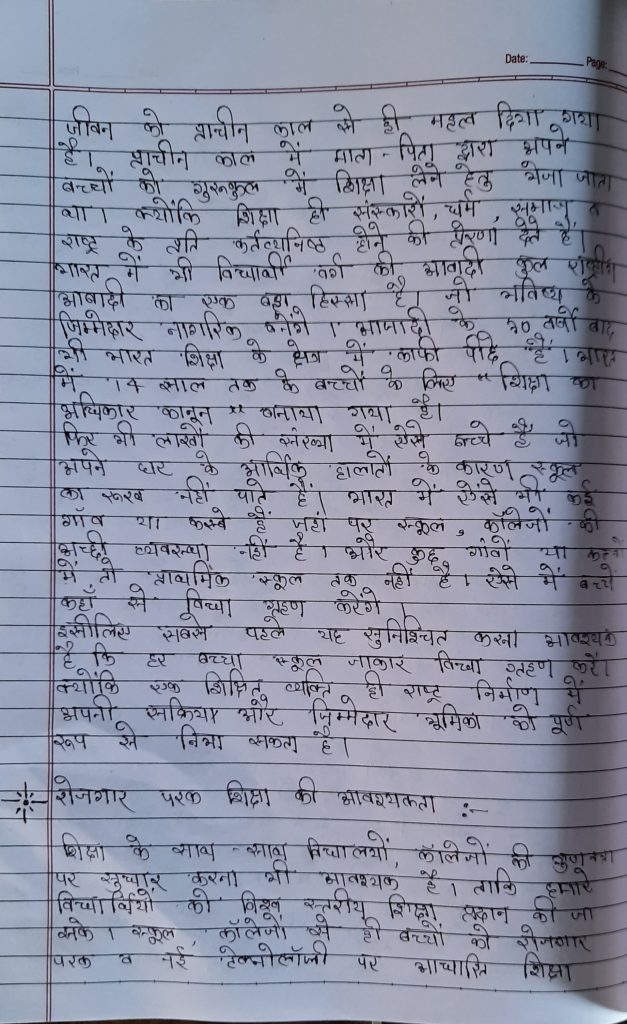 Date: Page:
जीवन को प्राचीन काल से ही महत्व दिया गया
है। प्राचीन काल में माता-पिता द्वारा अपने
बच्चों को गुरुकुल में शिक्षा लेने हेतु भेजा जाता
था। क्योंकि शिक्षा ही संस्कारो, धर्म, समाज व
राष्ट्र के प्रति कर्तव्यनिष्ठ होने की प्रेरणा देते हैं।
भारत में भी विद्यार्थी वर्ग की आबादी कुल राष्ट्रीय
आबादी का एक बड़ा हिस्सा है। जो भविष्य के
जिम्मेदार नागरिक बनेंगे। आजादी के 70 वर्षो बाद
भी भारत शिक्षा के क्षेत्र में काफी पीछे हैं। भारत
में 14 साल तक के बच्चों के लिए "शिक्षा का
अधिकार कानून" बनाया गया है।
फिर भी लाखों की संख्या में ऐसे बच्चे हैं जो
अपने घर के आर्थिक हालातों के कारण स्कूल
का रूख नहीं पाते हैं। भारत में ऐसे भी कई
गाँव या कस्बे हैं जहां पर स्कूल, कॉलेजों की
अच्छी व्यवस्था नहीं है। और कुछ गांवों या कस्बों
में तो प्राथमिक स्कूल तक नहीं है। ऐसे में बच्चे
कहाँ से विद्या ग्रहण करेंगे।
इसीलिए सबसे पहले यह सुनिश्चित करना आवश्यक
है कि हर बच्चा स्कूल जाकार विद्या ग्रहण करें।
क्योंकि एक शिक्षित व्यक्ति ही राष्ट्र निर्माण में
अपनी सक्रिया और जिम्मेदार भूमिका को पूर्ण
रूप से निभा सकता है।
रोजगार परक शिक्षा की आवश्यकता :-
शिक्षा के साथ-साथ विद्यालयों, कॉलेजों की गुणवत्ता
पर सुचारू करना भी आवश्यक है। ताकि हमारे
विद्यार्थियो को विश्व स्तरीय शिक्षा प्रदान की जा
सके। स्कूल, कॉलेजों से ही बच्चों को रोजगार
परक व नई टेक्नोलॉजी पर आधारित शिक्षा